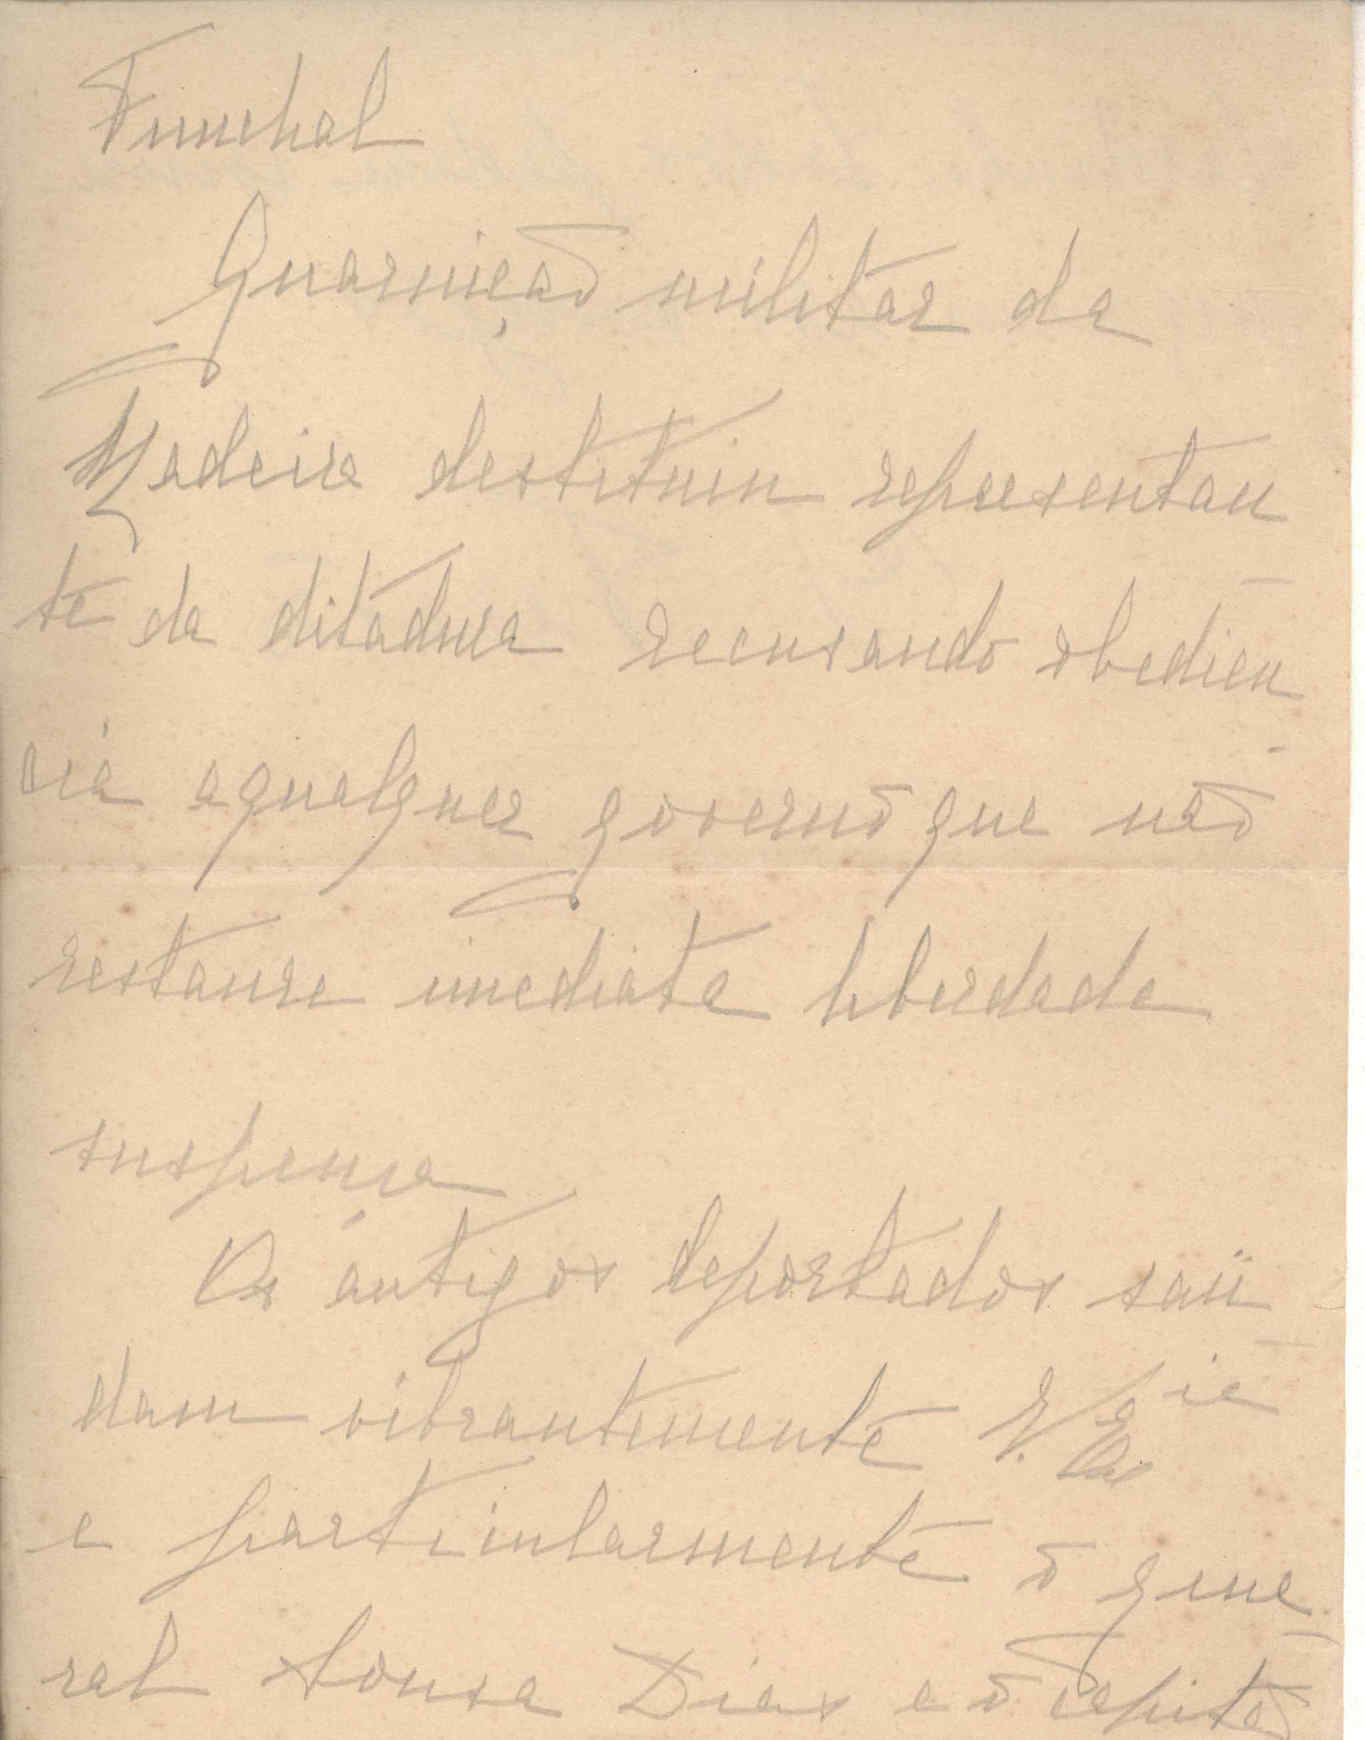 Funchal
Guarnição militar da
Madeira destituiu representan
te da ditadura recusando obediên
cia aqualquer governo que não
restaure imediata liberdade
suspensa
Os antigos deportados saü
dam vibrantemente V. Ex.cia
e particularmente o gene
ral Sousa Dias e o capitão